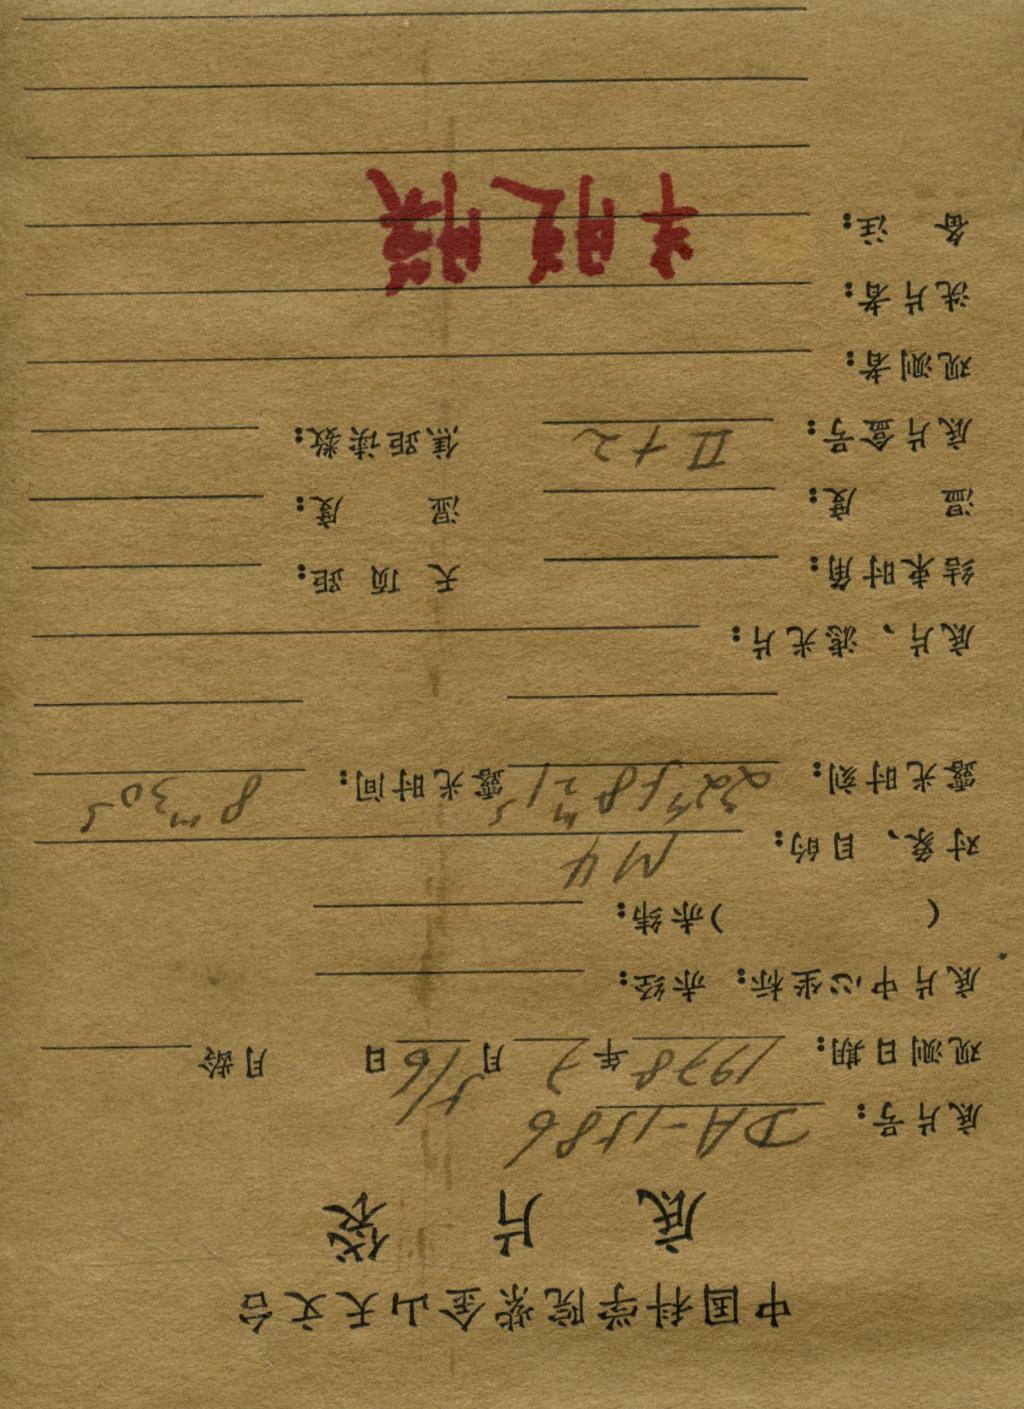 中国科学院紫金山天文台
底 片 袋
底片号: DA-1586
观测日期: 1978年7月15/16日 月龄
底片中心坐标: 赤经:
( )赤纬:
对象、目的: M4
露光时刻: 22h58m21s 露光时间: 8m30s
底片、滤光片:
结束时角: 天顶距:
温 度: 湿 度:
底片盒号: II+2 焦距读数:
观测者:
洗片者:
备 注: 半脱膜